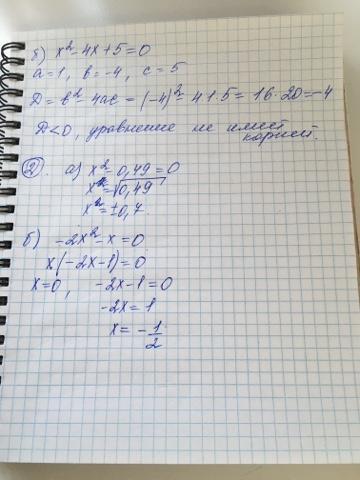 б) x² - 4x + 5 = 0
a = 1, b = -4, c = 5
D = b² - 4ac = (-4)² - 4·1·5 = 16 - 20 = -4
D < 0, уравнение не имеет
корней.
② . а) x² - 0,49 = 0
x² = √0,49
x² = ±0,7.
б) -2x² - x = 0
x(-2x-1) = 0
x = 0, -2x - 1 = 0
-2x = 1
x = -1/2